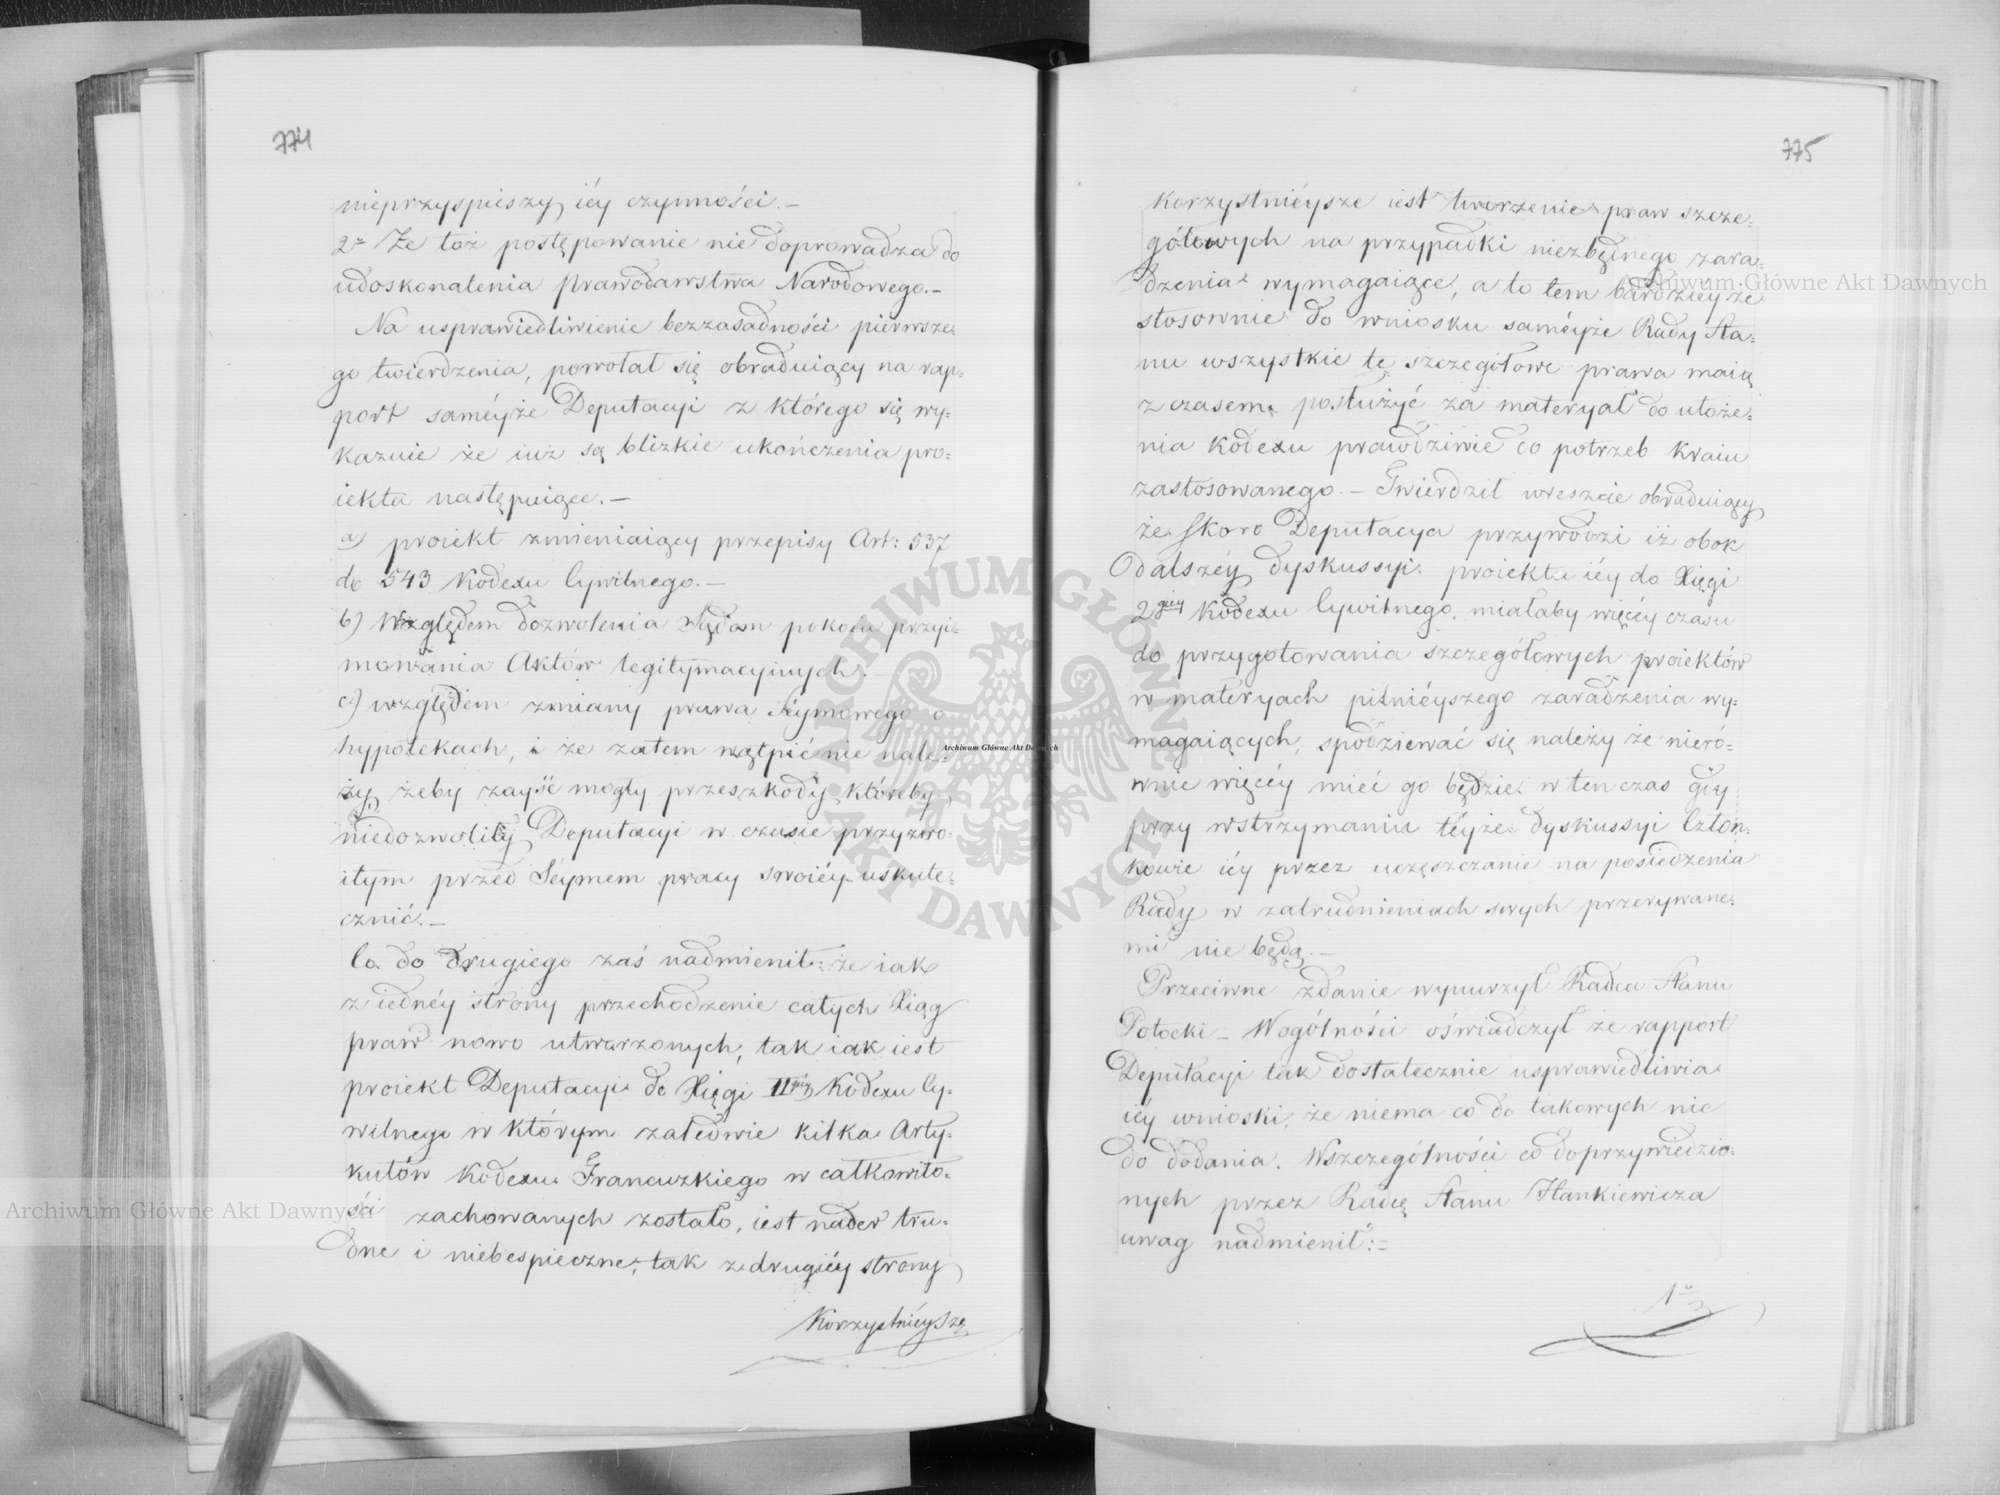 774
nieprzyspieszy iéy czynności.–
2º Że toż postępowanie nie doprowadza do
udoskonalenia Prawodawstwa Narodowego.–
Na usprawiedliwienie bezzasadności pierwsze=
go twierdzenia, powołał się obraduiący na rap=
port saméyże Deputacyi z którego się wy=
kazuie że iuż są blizkie ukończenia pro=
iekta następuiące.–
a) proiekt zmieniaiący przepisy Art: 537
do 543 Kodexu Cywilnego.–
b) Względem dozwolenia Sądom pokoiu przyi=
mowania Aktów legitymacyinych.–
c) względem zmiany prawa Séymowego o
hypotekach, i że zatem wątpić nie nale=
ży, żeby zayść mogły przeszkody, któreby
niedozwoliły Deputacyi w czasie przyzwo=
itym przed Séymem pracy swoiéy uskute=
cznić.–
Co do drugiego zaś nadmienił: że iak
z iednéy strony przechodzenie całych Xiąg
praw nowo utworzonych, tak iak iest
proiekt Deputacyi do Xięgi II giéy Kodexu Cy=
wilnego w którym zaledwie kilka Arty=
kułów Kodexu Francuzkiego w całkowito=
ści zachowanych zostało, iest nader tru=
dne i niebespieczne, tak z drugiéy strony
Korzystniéysze
775
korzystniéysze iest tworzenie praw szcze=
gółowych na przypadki niezbędnego zara=
dzenia wymagaiące, a to tem bardziéy że
stosownie do wniosku saméyże Rady Sta=
nu wszystkie te szczegółowe prawa maią
z czasem posłużyć za materyał do ułoże=
nia Kodexu prawdziwie do potrzeb kraiu
zastosowanego.– Twierdził wreszcie obraduiący
że skoro Deputacya przywodzi iż obok
dalszéy dyskussyi proiektu iéy do Xięgi
2 giéy Kodexu Cywilnego, miałaby więcéy czasu
do przygotowania szczegółowych proiektów
w materyach pilniéyszego zaradzenia wy=
magaiących, spodziewać się należy że nieró=
wnie więcéy mieć go będzie w ten czas gdy
przy wstrzymaniu téyże dyskussyi Człon=
kowie iéy przez uczęszczanie na posiedzenia
Rady w zatrudnieniach swych przerywane=
mi nie będą.–
Przeciwne zdanie wynurzył Radca Stanu
Potocki – Wogólności oświadczył że rapport
Deputacyi tak dostatecznie usprawiedliwia
iéy wnioski, że niema co do takowych nic
do dodania. Wszczególności co do przywiedzio=
nych przez Radcę Stanu Hankiewicza
uwag nadmienił:=
1º
Archiwum Główne Akt Dawnych
Archiwum Główne Akt Dawnych
Archiwum Główne Akt Dawnych
ARCHIWUM GŁÓWNE AKT DAWNYCH